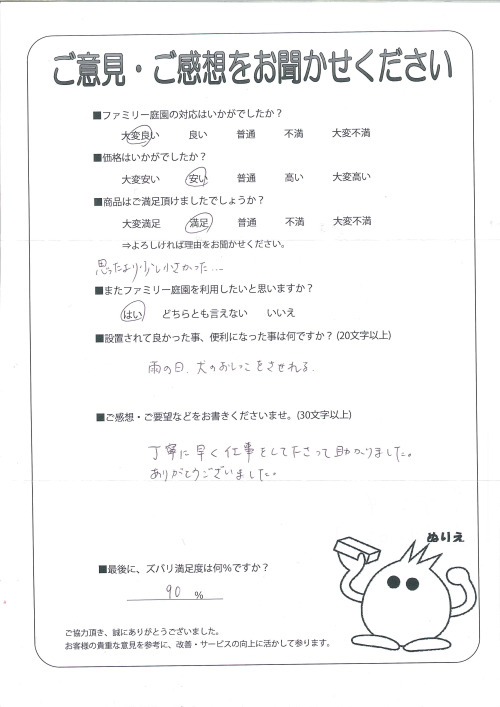 ご意見・ご感想をお聞かせください
■ファミリー庭園の対応はいかがでしたか？
大変良い 良い 普通 不満 大変不満
■価格はいかがでしたか？
大変安い 安い 普通 高い 大変高い
■商品はご満足頂けましたでしょうか？
大変満足 満足 普通 不満 大変不満
⇒よろしければ理由をお聞かせください。
思ったより少し小さかった…
■またファミリー庭園を利用したいと思いますか？
はい どちらとも言えない いいえ
■設置されて良かった事、便利になった事は何ですか？(20文字以上)
雨の日、犬のおしっこをさせれる。
■ご感想・ご要望などをお書きくださいませ。(30文字以上)
丁寧に早く仕事をして下さって助かりました。
ありがとうございました。
ぬりえ
■最後に、ズバリ満足度は何％ですか？
90 ％
ご協力頂き、誠にありがとうございました。
お客様の貴重な意見を参考に、改善・サービスの向上に活かして参ります。